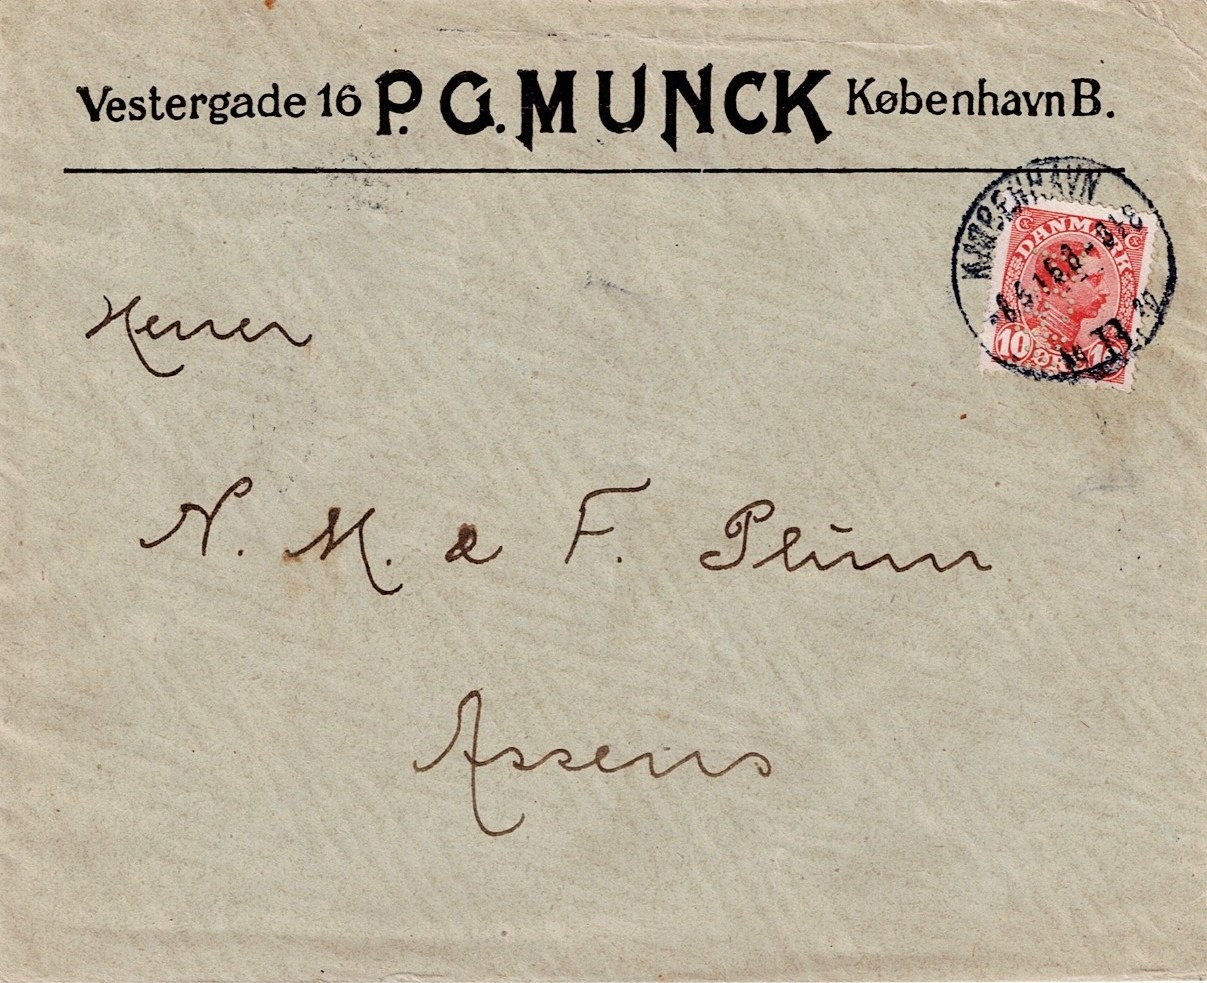 Vestergade 16 P. G. MUNCK København B.
KJØBENHAVN
DANMARK
10 ØRE
B
Herrer
N. M. & F. Plum
Assens